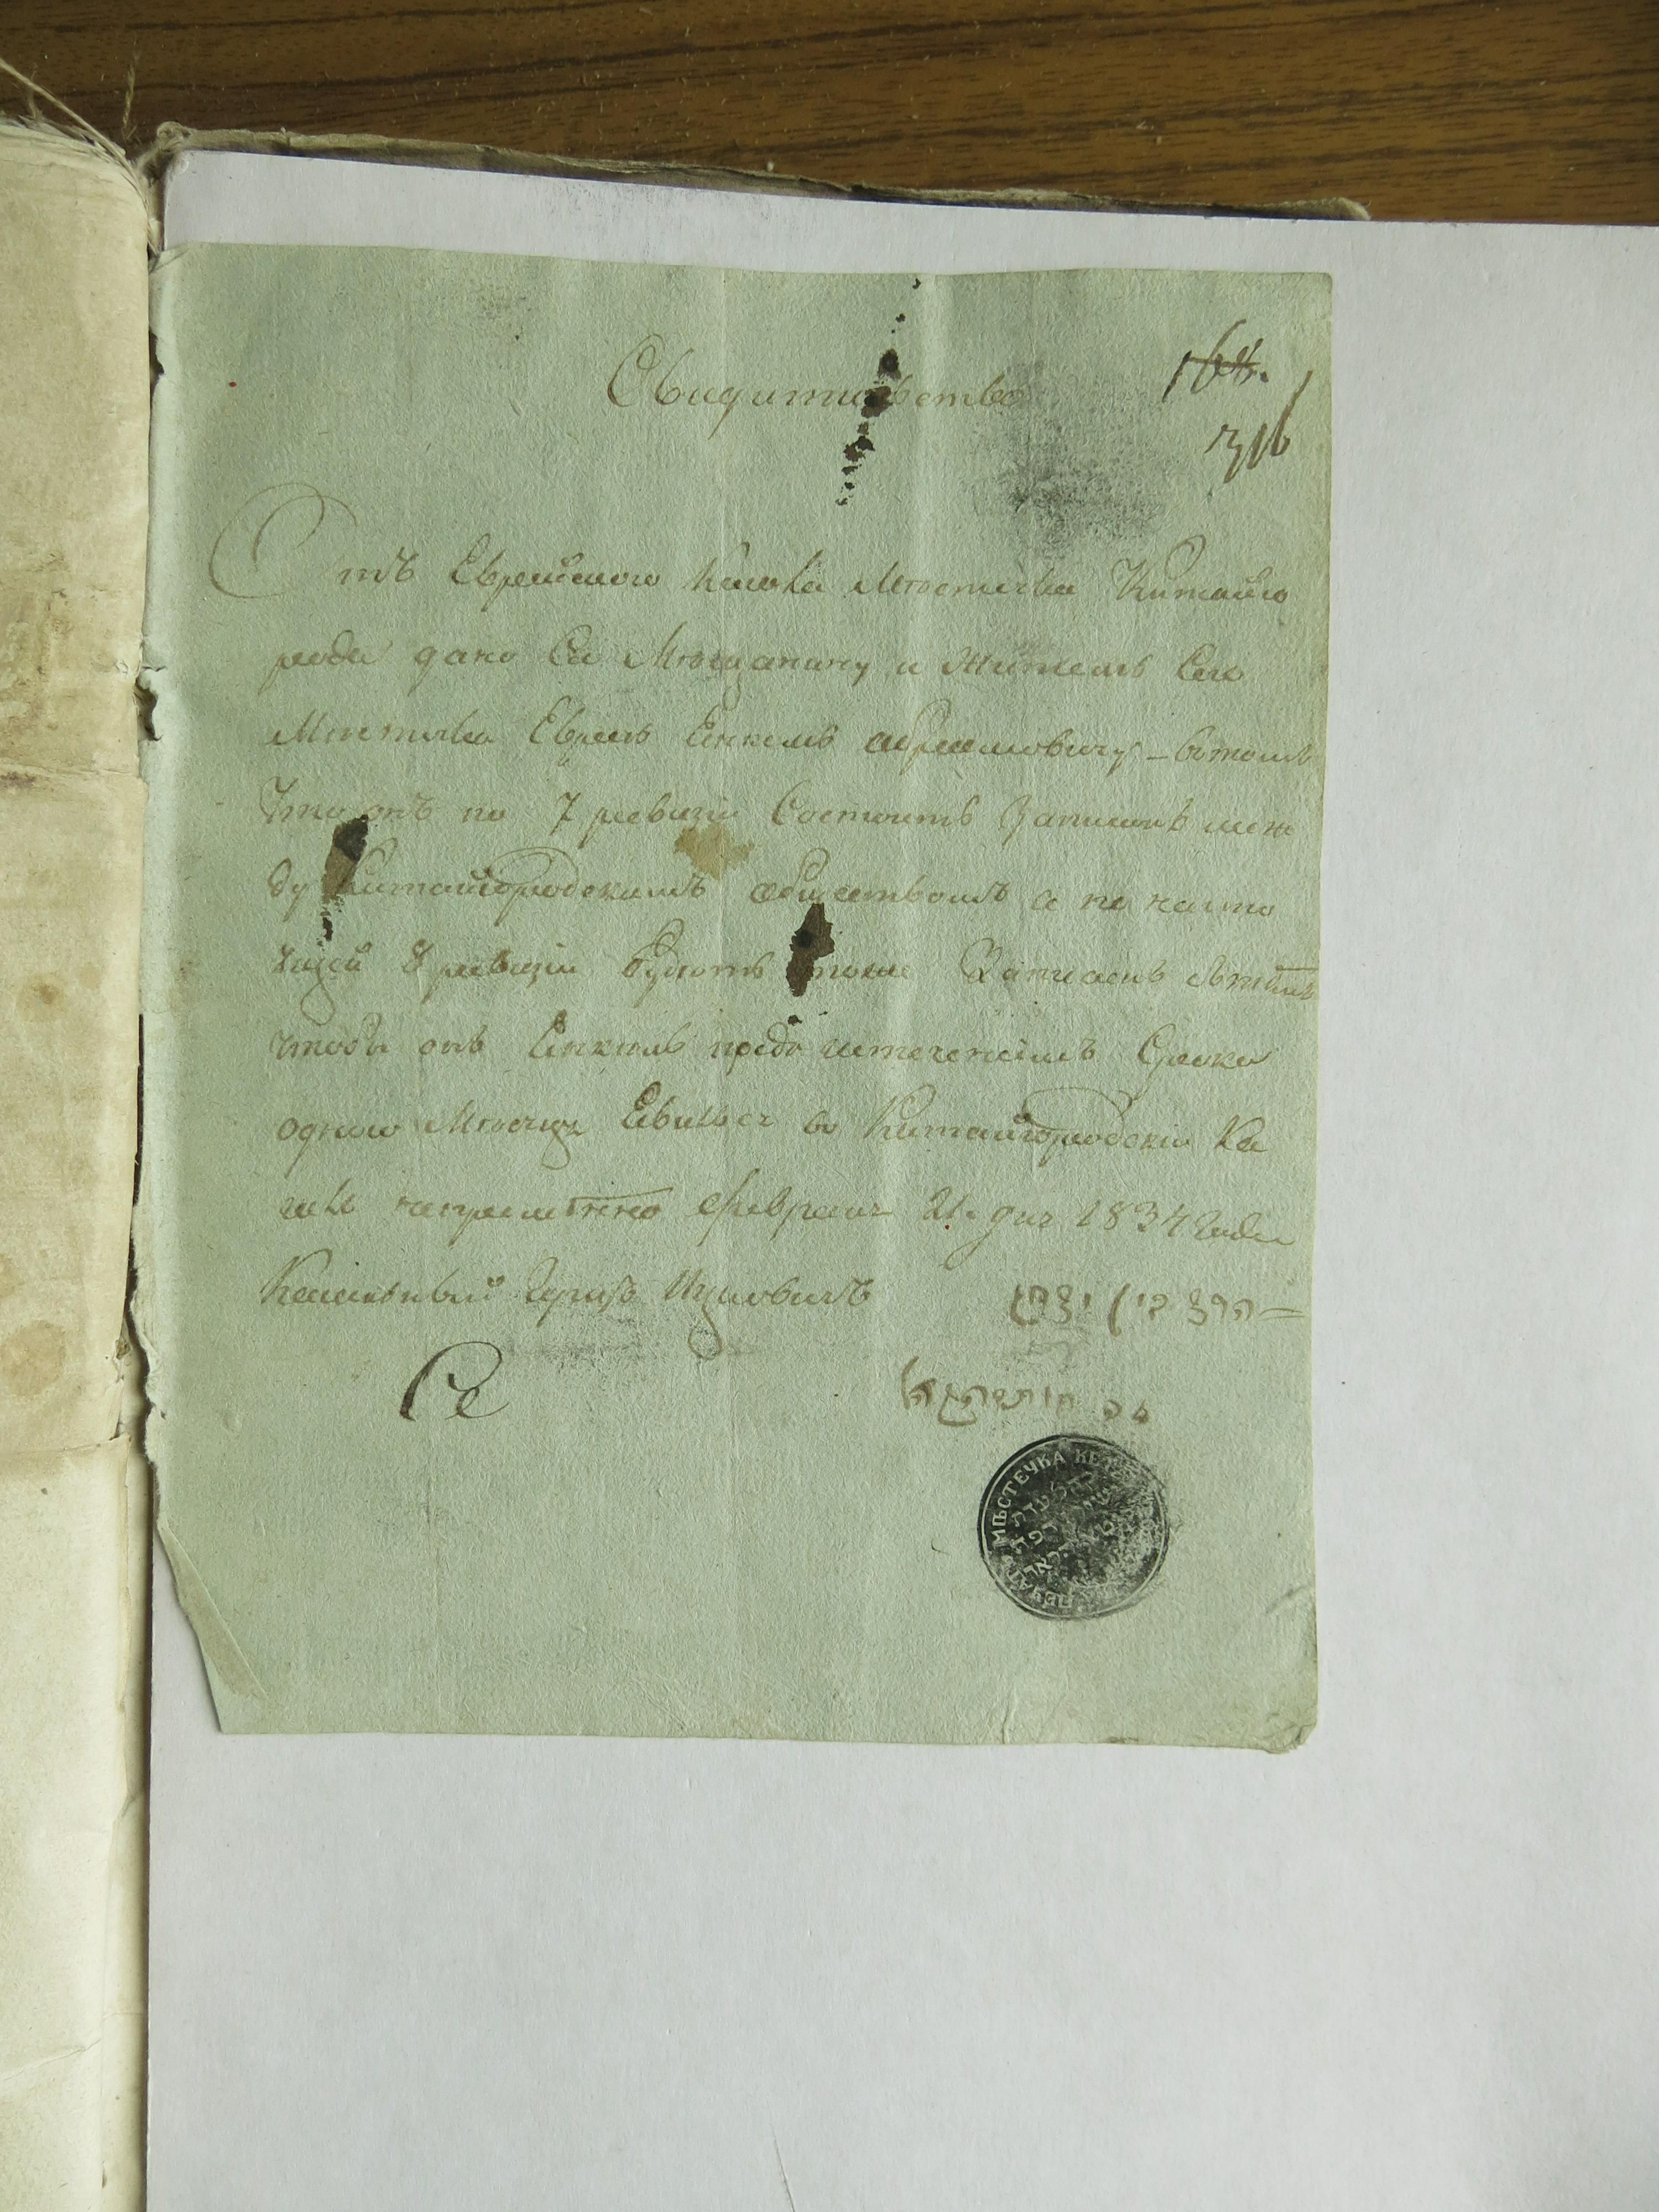 Свидительство
316
Отъ Еврейского Кагала Мѣстечка Китайго
рода дано Сіе Мѣщанину и Жителю Сего
Мѣстечка Еврею Енкелю Абрамовичу – вотомъ
Что онъ по 7 ревизіи Состоитъ Записанъ меж
ду Китайгородскимъ обществомъ а по насто
ящей 8 ревизіи будетъ тоже Записанъ
чтобы онъ Енкель предъ истеченіемъ Срока
одного Мѣсяца Евился в Китайгородскій Ка
галъ непременно февраля 21. дня 1834 года
Кагальный Герцъ Ицковичъ
הרץ בין יצחק
ПЕЧАТЬ МѢСТЕЧКА